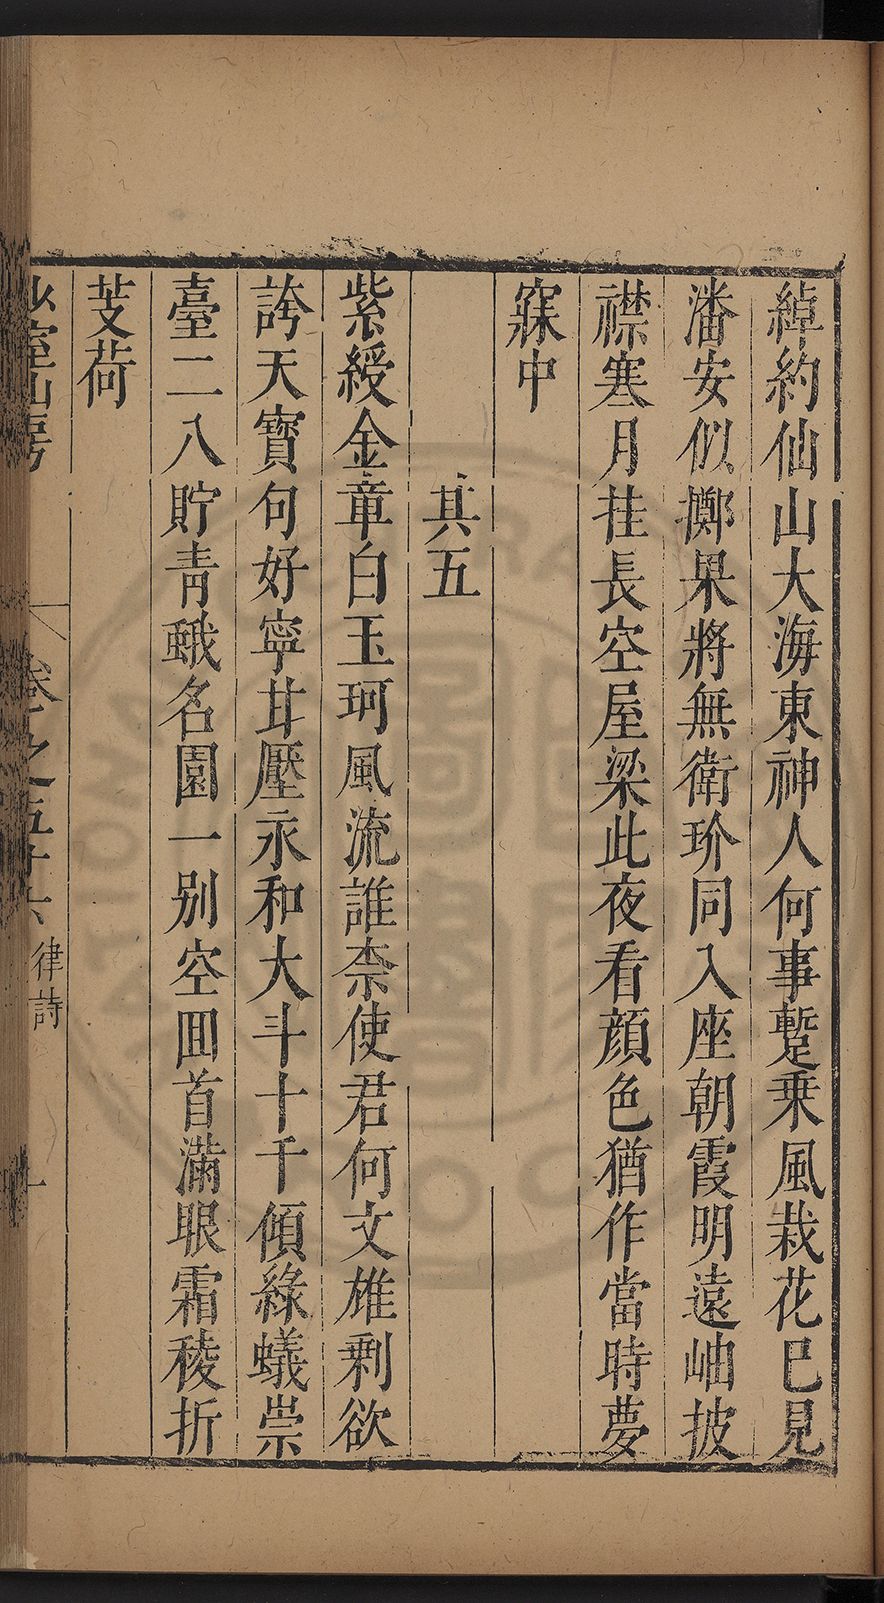 綽約仙山大海東神人何事蹔乗風栽花巳見
潘安似擲果將無衛玠同入座朝霞明遠岫披
襟寒月挂長空屋梁此夜看顔色猶作當時夢
寐中
其五
紫綬金章白玉珂風流誰柰使君何文雄剩欲
誇天寳句好寧甘壓永和大斗十千傾綠蟻崇
臺二八貯青蛾名園一别空囬首滿眼霜稜折
芰荷
少室山房
卷之五十六
律詩